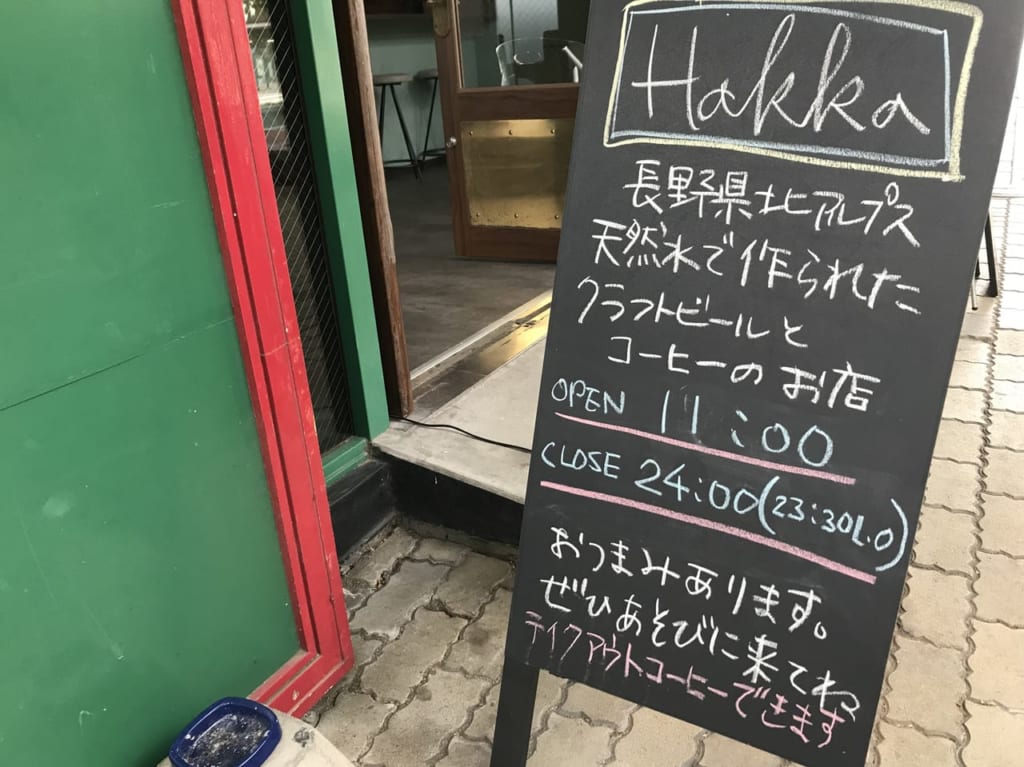 Hakka
長野県北アルプス
天然水で作られた
クラフトビールと
コーヒーのお店
OPEN 11:00
CLOSE 24:00(23:30L.O)
おつまみあります。
ぜひあそびに来てね
テイクアウトコーヒーできます